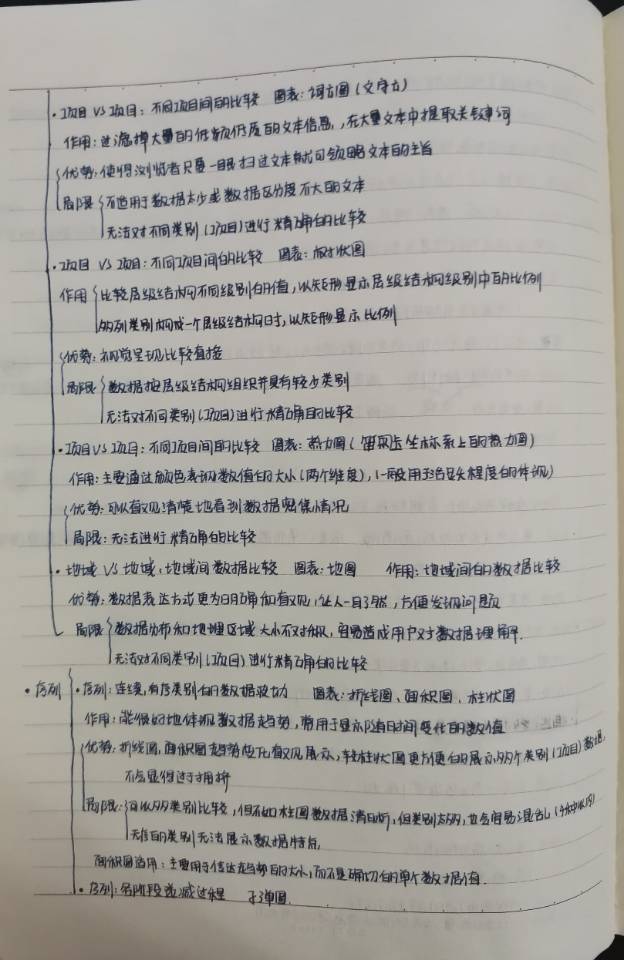 ·项目 VS 项目: 不同项目间的比较 图表: 词云图 (文字云)
作用: 过滤掉大量的低频低质的文本信息, 在大量文本中提取关键词
优势: 使得浏览者只要一眼扫过文本就可领略文本的主旨
局限 不适用于数据太少或数据区分度不大的文本
无法对不同类别 (项目) 进行精确的比较
·项目 VS 项目: 不同项目间的比较 图表: 树状图
作用 比较层级结构不同级别的值, 以矩形显示层级结构级别中的比例
的列类别构成一个层级结构时, 以矩形显示比例
优势: 视觉呈现比较直接
局限 数据按层级结构组织并具有较少类别
无法对不同类别 (项目) 进行精确的比较
·项目 VS 项目: 不同项目间的比较 图表: 热力图 (笛卡尔坐标系上的热力图)
作用: 主要通过颜色表现数值的大小 (两个维度), (一般用于的体现)
优势: 可以直观清楚地看到数据密集情况
局限: 无法进行精确的比较
·地域 VS 地域: 地域间数据比较 图表: 地图 作用: 地域间的数据比较
优势: 数据表达方式更为明确和直观, 让人一目了然, 方便发现问题
局限 数据分布和地理区域大小不对称, 容易造成用户对数据理解.
无法对不同类别 (项目) 进行精确的比较
·序列 ·序列: 连续, 有序类别的数据波动 图表: 折线图、面积图、柱状图
作用: 能很好地体现数据趋势, 常用于显示随时间变化的数值
优势: 折线图, 面积图趋势变化直观展示, 较柱状图更方便的展示多个类别 (项目) 数据,
不会显得过于拥挤
局限: 可以多类别比较, 但不如柱图数据清晰, 但类别太多, 也会容易混乱
无序的类别无法展示数据特点
面积图适用: 主要用于传达趋势的大小, 而不是确切的单个数据值.
·序列: 各阶段递减过程 子弹图.